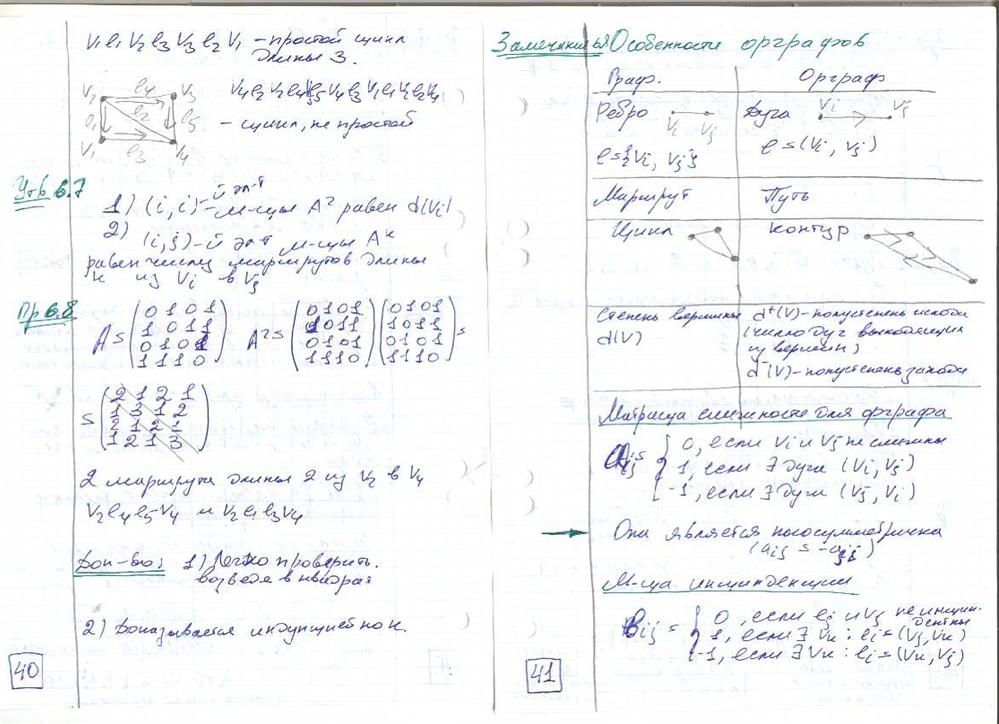 V₁ e₁ V₂ e₃ V₃ e₂ V₁ – простой цикл
длины 3.
V₂ e₄ V₃
e₁ e₂ e₅
V₁ e₃ V₄
– цикл, не простой
Утв 6.7
1) (i,i)-й эл-т м-цы A² равен d(Vi)
2) (i,j)-й эл-т м-цы Aᵏ
равен числу маршрутов длины
к из Vi в Vj
Пр 6.8
A = (0 1 0 1
1 0 1 1
0 1 0 1
1 1 1 0)
A² = (0 1 0 1
1 0 1 1
0 1 0 1
1 1 1 0) (0 1 0 1
1 0 1 1
0 1 0 1
1 1 1 0) =
= (2 1 2 1
1 3 1 2
2 1 2 1
1 2 1 3)
2 маршрута длины 2 из V₂ в V₄
V₂e₄e₅V₄ и V₂e₁e₃V₄
Док-во: 1) Легко проверить.
возведя в квадрат
2) Доказывается индукцией по к.
40
Особенности орграфов
Граф. Орграф
Ребро Vi Vj Дуга Vi Vj
e = {Vi, Vj} e = (Vi, Vj)
Маршрут Путь
Цикл контур
Степень вершины d⁺(V) – полустепень исхода
d(V) (число дуг выходящих
из вершин)
d⁻(V) – полустепень захода
Матрица смежности для орграфа
aij = { 0, если Vi и Vj не смежны
1, если ∃ дуга (Vi, Vj)
-1, если ∃ дуги (Vj, Vi)
Она является кососимметрична
(aij = -aji)
М-ца инцинденции
Bij = { 0, если ei и Vj не инцин-
дентны
1, если ∃ Vк : ei = (Vj, Vк)
-1, если ∃ Vк : ei = (Vк, Vj)
41